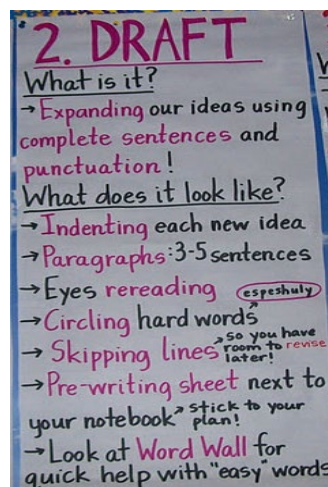 2. DRAFT
What is it?
→Expanding our ideas using
complete sentences and
punctuation!
What does it look like?
→Indenting each new idea
→Paragraphs: 3-5 sentences
→Eyes rereading
espeshuly
→Circling hard words
→Skipping lines
so you have
room to revise
later!
→Pre-writing sheet next to
your notebook
stick to your
plan!
→Look at Word Wall for
quick help with "easy" words